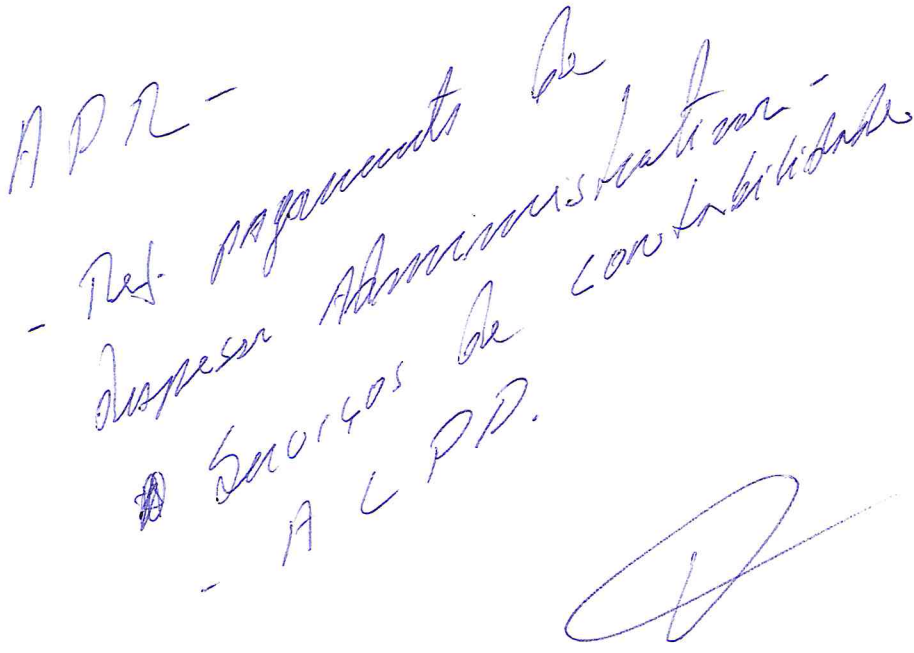 APR -
- Ref. pagamento de
despesas Administrativas -
Serviços de contabilidade
- A L P D.